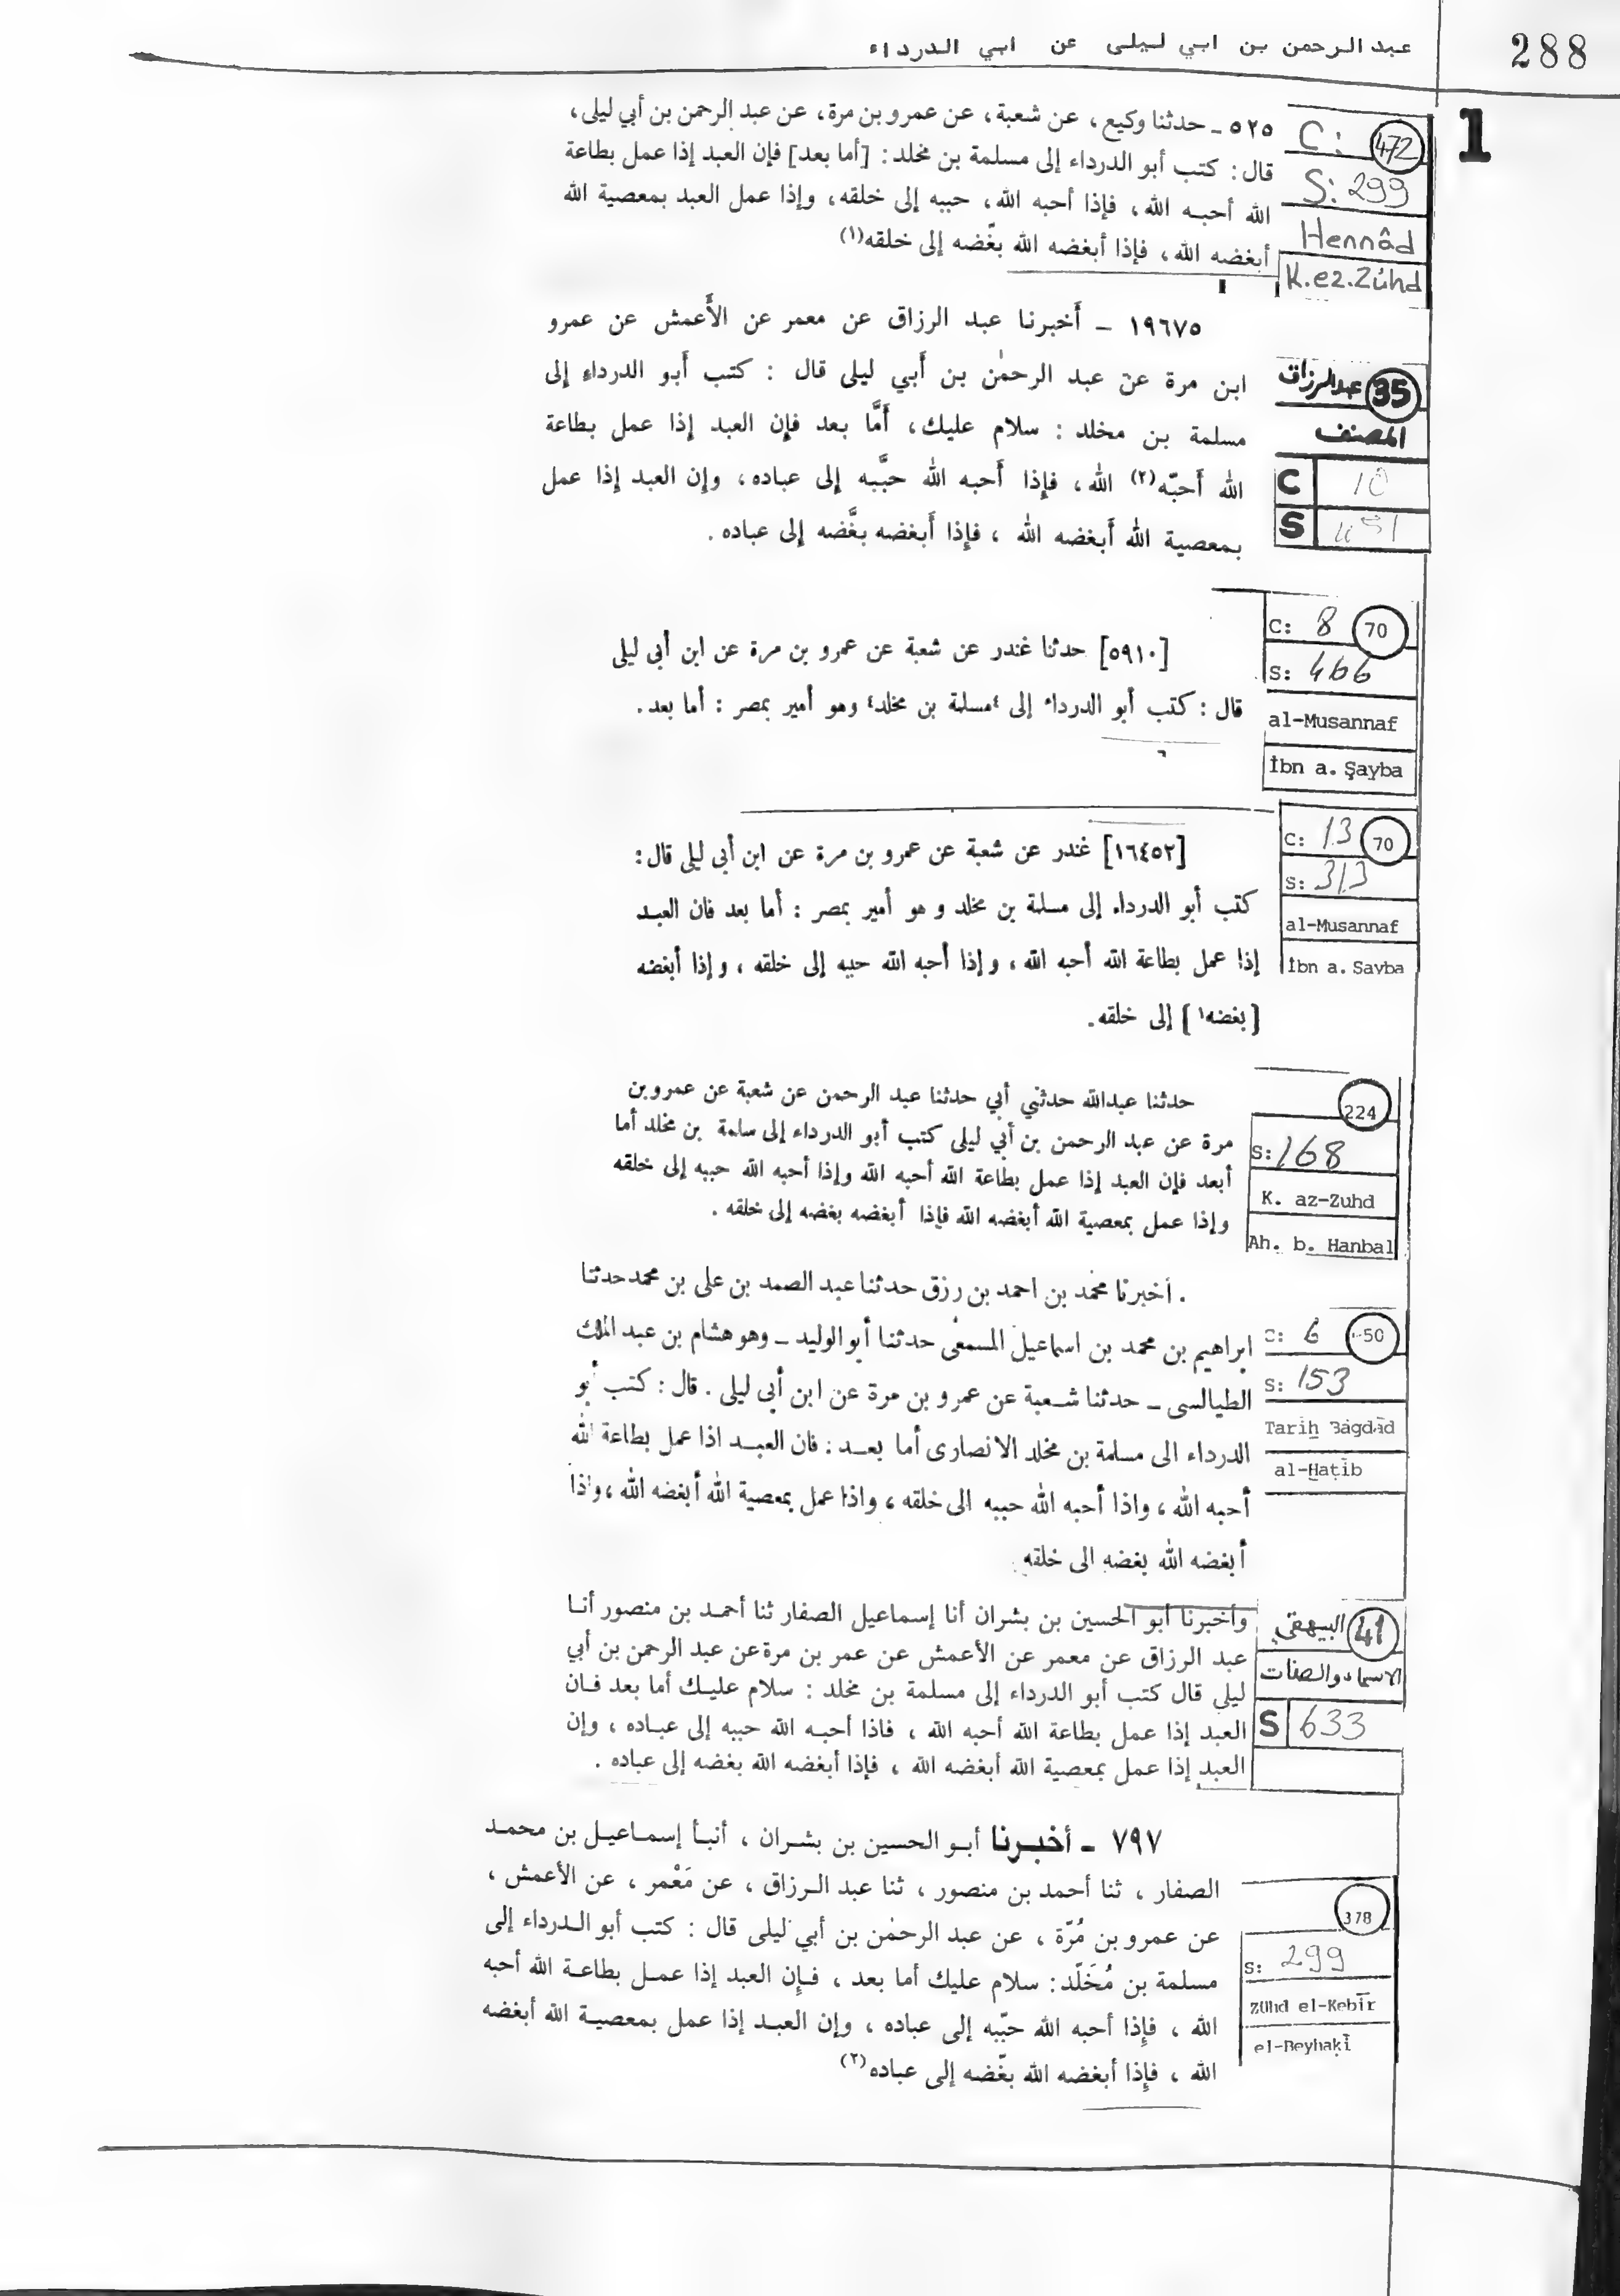 288
عبد الرحمن بن ابي ليلى عن ابي الدرداء
1
C: 472
S: 299
Hennâd
K.ez.Zühd
٥٢٥ - حدثنا وكيع، عن شعبة، عن عمرو بن مرة، عن عبد الرحمن بن أبي ليلى،
قال: كتب أبو الدرداء إلى مسلمة بن مخلد: [أما بعد] فإن العبد إذا عمل بطاعة
الله أحبه الله، فإذا أحبه الله، حببه إلى خلقه، وإذا عمل العبد بمعصية الله
أبغضه الله، فإذا أبغضه الله بغّضه إلى خلقه(١)
35 عبدالرزاق
المصنف
C 10
S 451
١٩٦٧٥ - أَخبرنا عبد الرزاق عن معمر عن الأَعمش عن عمرو
ابن مرة عن عبد الرحمٰن بن أَبي ليلى قال : كتب أَبو الدرداء إلى
مسلمة بن مخلد : سلام عليك، أَمَّا بعد فإن العبد إذا عمل بطاعة
الله أَحبّه(٢) الله، فإذا أَحبه الله حبَّبه إلى عباده، وإن العبد إذا عمل
بمعصية الله أَبغضه الله ، فإذا أَبغضه بغَّضه إلى عباده .
C: 8 70
S: 466
al-Musannaf
İbn a. Şayba
[٥٩١٠] حدثنا غندر عن شعبة عن عمرو بن مرة عن ابن أبى ليلى
قال : كتب أبو الدرداء إلى ٤مسلمة بن مخلد٤ وهو أمير بمصر : أما بعد.
C: 13 70
S: 313
al-Musannaf
İbn a. Sayba
[١٦٤٥٢] غندر عن شعبة عن عمرو بن مرة عن ابن أبى ليلى قال:
كتب أبو الدرداء إلى مسلمة بن مخلد و هو أمير بمصر : أما بعد فان العبد
إذا عمل بطاعة الله أحبه الله ، و إذا أحبه الله حببه إلى خلقه ، و إذا أبغضه
[بغضه١] إلى خلقه.
224
S: 168
K. az-Zuhd
Ah. b. Hanbal
حدثنا عبدالله حدثني أبي حدثنا عبد الرحمن عن شعبة عن عمرو بن
مرة عن عبد الرحمن بن أبي ليلى كتب أبو الدرداء إلى سلمة بن مخلد أما
أبعد فإن العبد إذا عمل بطاعة الله أحبه الله وإذا أحبه الله حببه إلى خلقه
وإذا عمل بمعصية الله أبغضه الله فإذا أبغضه بغضه إلى خلقه .
C: 6 50
S: 153
Tarih Bağdād
al-Haṭīb
. أخبرنا محمد بن احمد بن رزق حدثنا عبد الصمد بن على بن محمد حدثنا
ابراهيم بن محمد بن اسماعيل المسمعى حدثنا أبو الوليد - وهو هشام بن عبد الملك
الطيالسى - حدثنا شعبة عن عمرو بن مرة عن ابن أبى ليلى . قال : كتب أبو
الدرداء الى مسلمة بن مخلد الانصارى أما بعد : فان العبد اذا عمل بطاعة الله
أحبه الله ، واذا أحبه الله حببه الى خلقه ، واذا عمل بمعصية الله أبغضه الله ، واذا
أبغضه الله بغضه الى خلقه .
41 البيهقي
الاسماء والصفات
S 633
وأخبرنا أبو الحسين بن بشران أنا إسماعيل الصفار ثنا أحمد بن منصور أنا
عبد الرزاق عن معمر عن الأعمش عن عمر بن مرة عن عبد الرحمن بن أبي
ليلى قال كتب أبو الدرداء إلى مسلمة بن مخلد : سلام عليك أما بعد فان
العبد إذا عمل بطاعة الله أحبه الله ، فاذا أحبه الله حببه إلى عباده ، وإن
العبد إذا عمل بمعصية الله أبغضه الله ، فإذا أبغضه الله بغضه إلى عباده .
378
S: 299
Zühd el-Kebīr
el-Beyhaḳī
٧٩٧ - أخبرنا أبو الحسين بن بشران ، أنبأ إسماعيل بن محمد
الصفار ، ثنا أحمد بن منصور ، ثنا عبد الرزاق ، عن مَعْمر ، عن الأعمش ،
عن عمرو بن مُرّة ، عن عبد الرحمٰن بن أبي ليلى قال : كتب أبو الدرداء إلى
مسلمة بن مُخَلّد : سلام عليك أما بعد ، فإن العبد إذا عمل بطاعة الله أحبه
الله ، فإذا أحبه الله حبّبه إلى عباده ، وإن العبد إذا عمل بمعصية الله أبغضه
الله ، فإذا أبغضه الله بغّضه إلى عباده(٢)